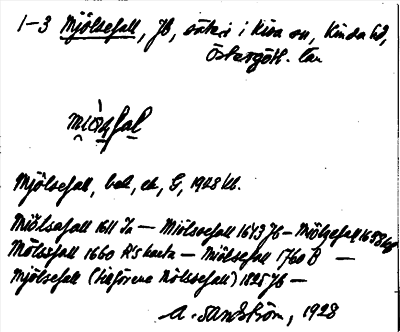 1-3 Mjölsefall, Jb, säteri i Kisa sn, Kinda hd,
Östergötl. län
Mjölsefall, bek, ek, G, 1928 kl.
Miölsafall 1611 Ja — Miölsefall 1643 Jb — Miölsefall 1658
Mölsfall 1660 karta — Miölsefall 1760 B —
Mjölsefall (tillförene Nölsefall) 1825 Jb —
A. Sandström, 1928